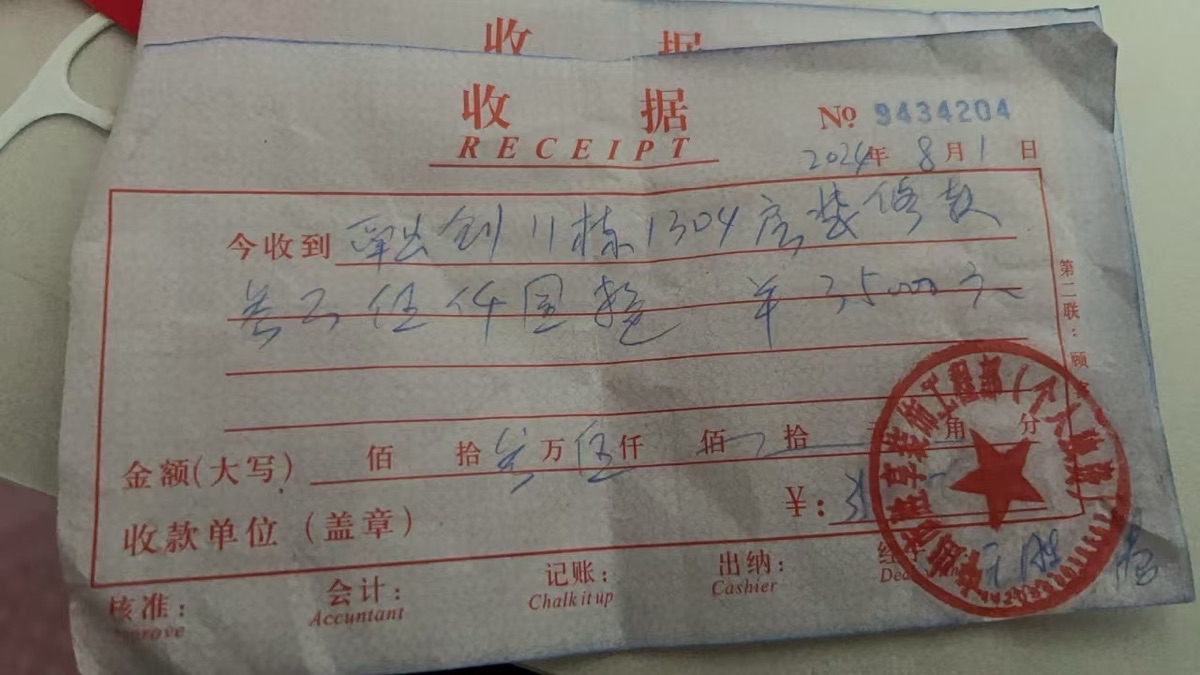 收 据
收 据
RECEIPT
№ 9434204
2024年 8月1日
今收到 创11栋1304房装修款
叁万伍仟圆整 ¥35000元
第二联：顾客
金额(大写) 佰 拾叁万伍仟 佰 拾 角 分
收款单位（盖章） ¥：
核准： 会计： 记账： 出纳：
Accuntant Chalkitup Cashier
装饰工程部